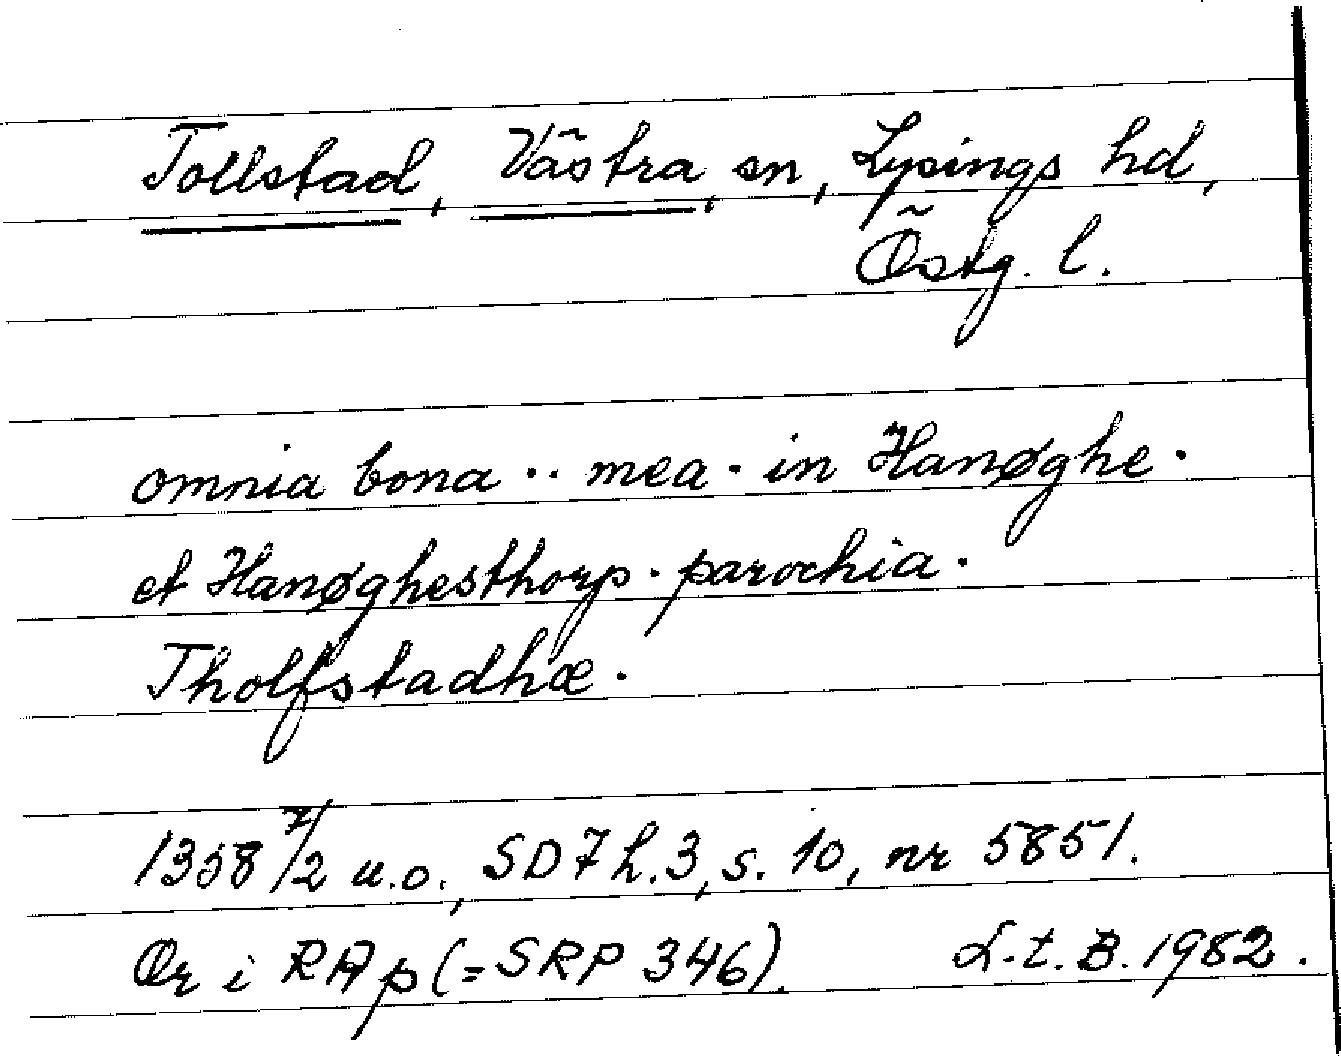 Tollstad, Västra, sn, Lysings hd,
Östg. l.
omnia bona .. mea . in Hanøghe .
et Hanøghesthorp . parochia .
Tholfstadhæ .
1358 7/2 u.o., SD 7 h.3, s. 10, nr 5851.
Or i RAp (=SRP 346). L.t.B. 1982.